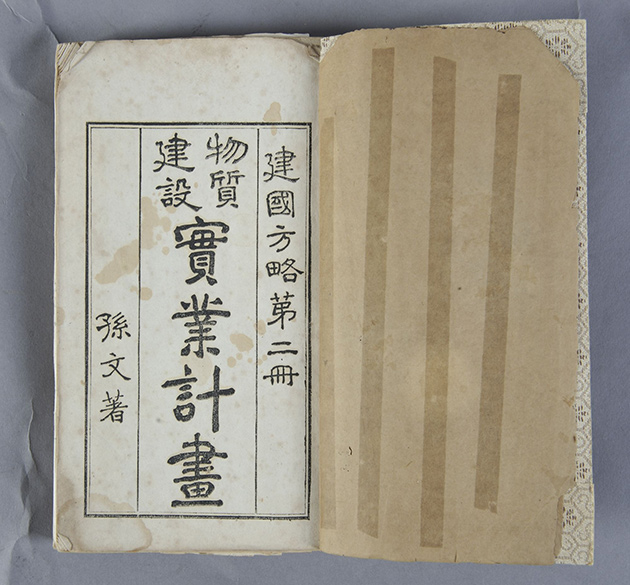 建國方略第二冊
物質
建設
實業計畫
孫文著